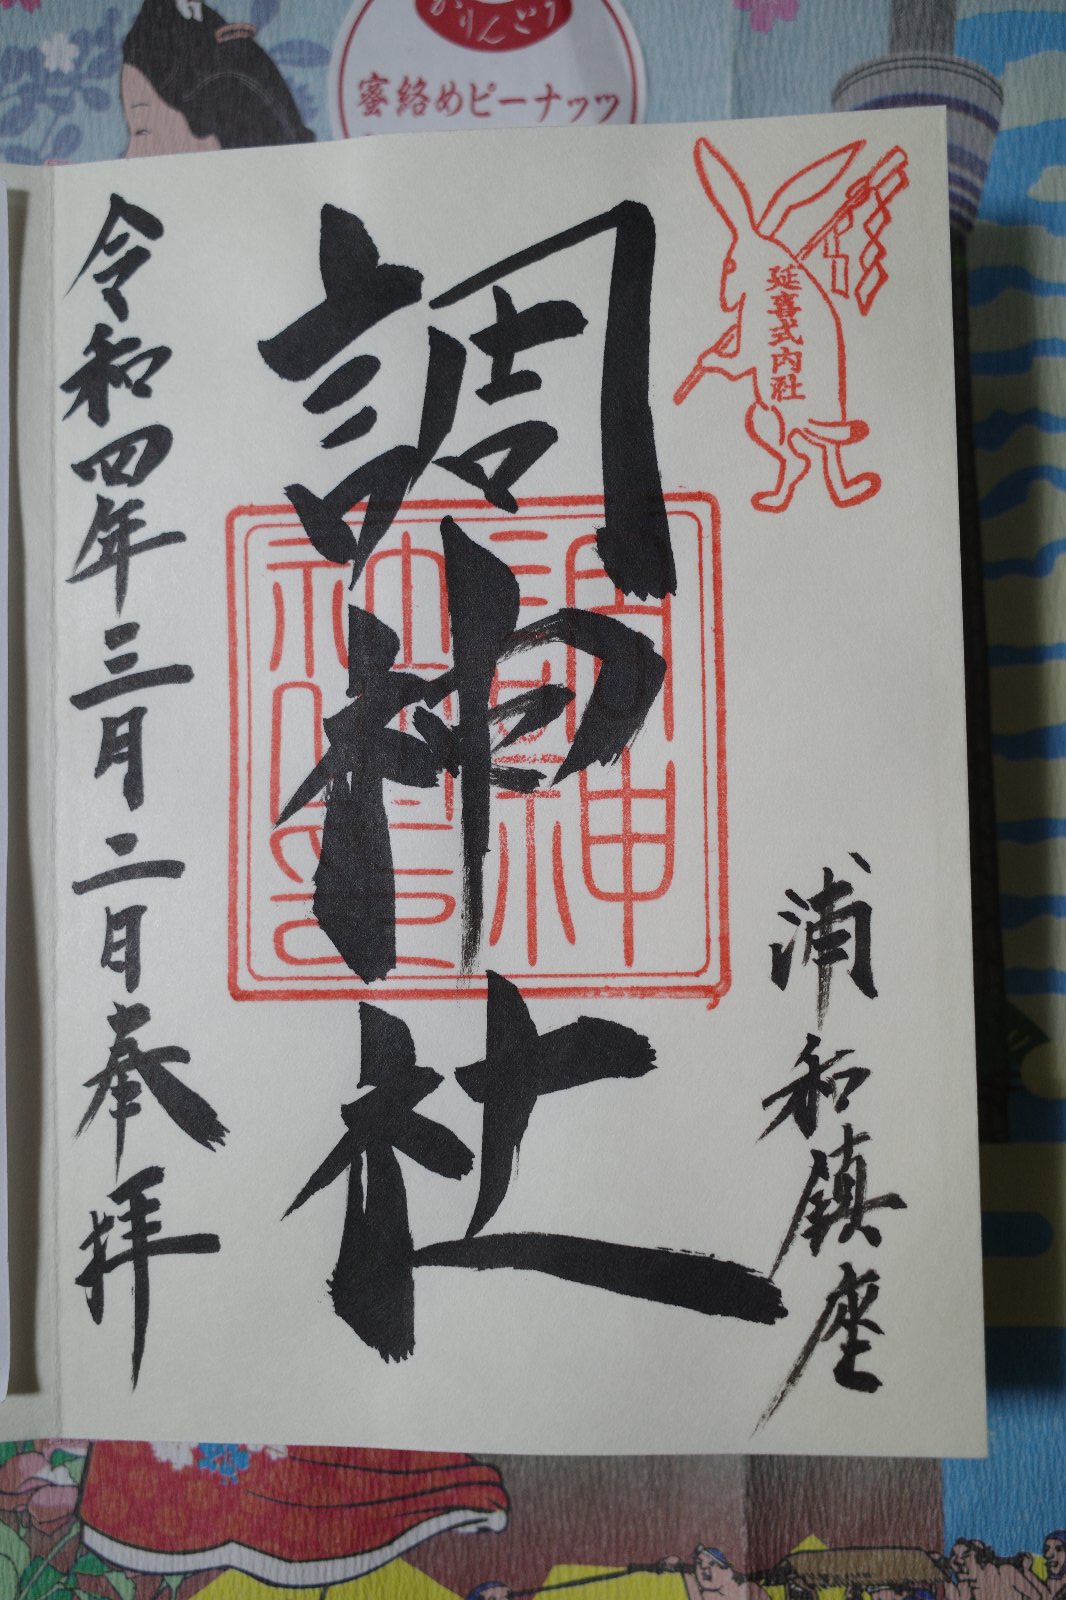 かりんとう
蜜絡めピーナッツ
延喜式内社
浦和鎮座
調神社
調神
社之印
令和四年三月二日奉拝